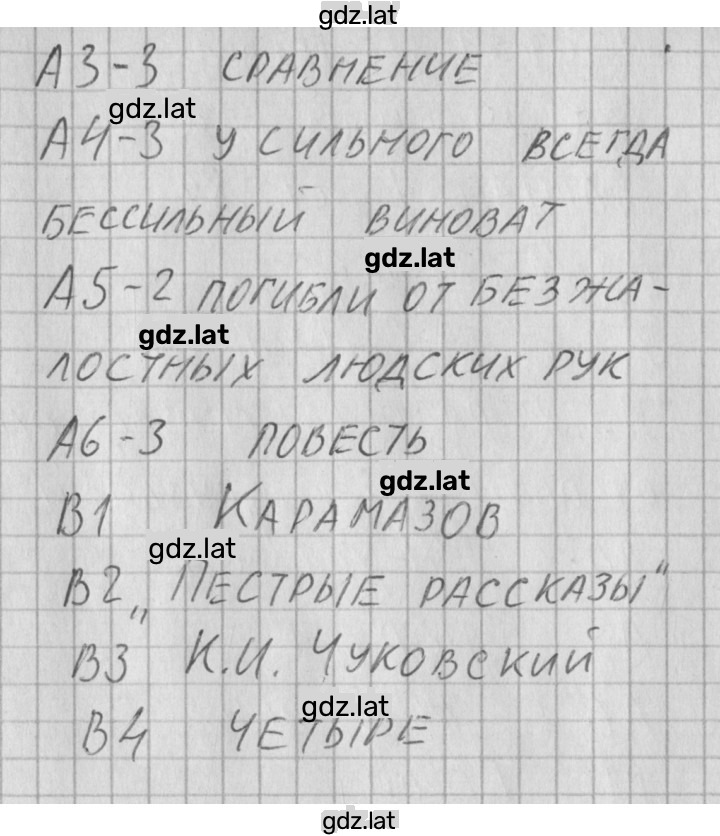 gdz.lat
А3-3 СРАВНЕНИЕ
gdz.lat
А4-3 У СИЛЬНОГО ВСЕГДА
БЕССИЛЬНЫЙ ВИНОВАТ
gdz.lat
А5-2 ПОГИБЛИ ОТ БЕЗЖА-
gdz.lat
ЛОСТНЫХ ЛЮДСКИХ РУК
А6-3 ПОВЕСТЬ
gdz.lat
В1 КАРАМАЗОВ
gdz.lat
В2 „ПЕСТРЫЕ РАССКАЗЫ“
В3 К.И. ЧУКОВСКИЙ
gdz.lat
В4 ЧЕТЫРЕ
gdz.lat